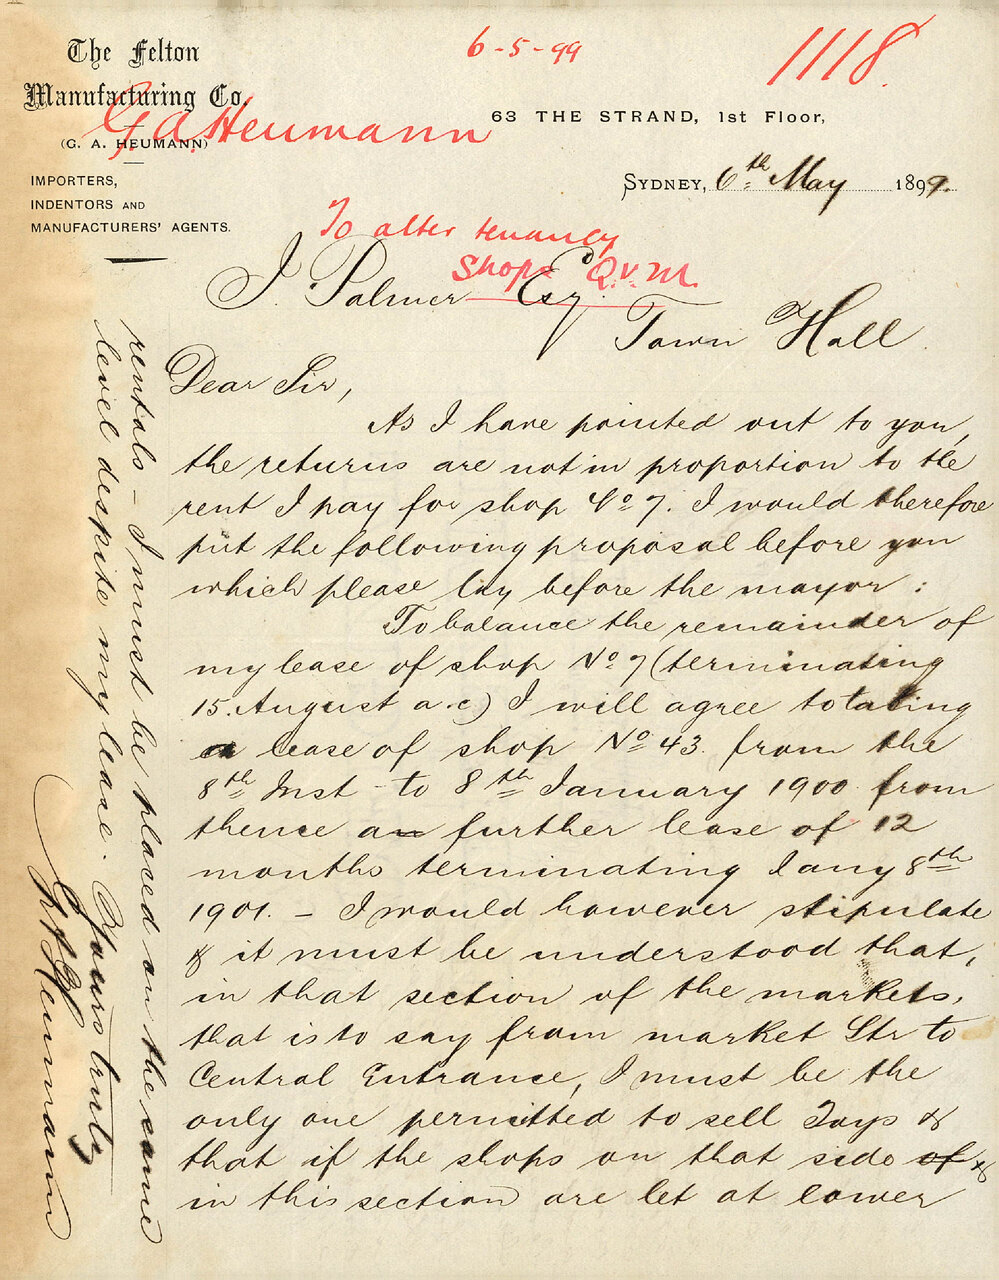 The Felton
Manufacturing Co.
(G. A. HEUMANN)
IMPORTERS,
INDENTORS AND
MANUFACTURERS' AGENTS.
6-5-99
1118.
G. A. Heumann
63 THE STRAND, 1st Floor,
SYDNEY, 6th May 1899.
To alter tenancy
Shops Q.V.M.
J. Palmer Esq.
Town Hall.
Dear Sir,
As I have pointed out to you,
the returns are not in proportion to the
rent I pay for shop No 7. I would therefore
put the following proposal before you
which please lay before the mayor:
To balance the remainder of
my lease of shop No 7 (terminating
15. August a.c) I will agree to taking
a lease of shop No 43. from the
8th Inst - to 8th January 1900 from
thence an further lease of 12
months terminating Jany 8th
1901. - I would however stipulate
& it must be understood that,
in that section of the markets,
that is to say from market Str to
Central Entrance, I must be the
only one permitted to sell Toys &
that if the shops on that side of &
in this section are let at lower
rentals - I must be placed on the same
level despite my lease.
Yours truly
G A Heumann